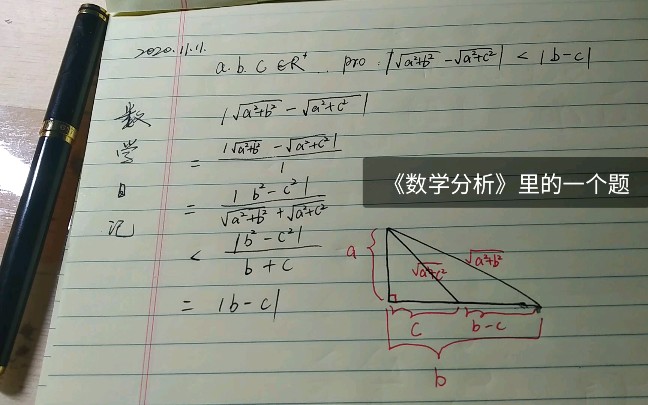 2020.11.11.
a.b.c ∈R⁺. pro: |√a²+b² - √a²+c²| < |b-c|
数学日记
|√a²+b² - √a²+c²|
= |√a²+b² - √a²+c²| / 1
= |b²-c²| / √a²+b² + √a²+c²
< |b²-c²| / b+c
= |b-c|
《数学分析》里的一个题
a
√a²+c²
√a²+b²
c
b-c
b